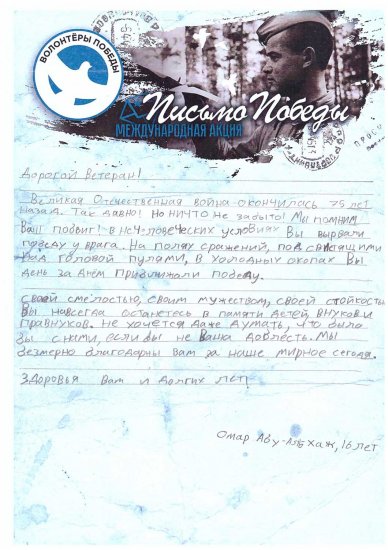 ВОЛОНТЁРЫ ПОБЕДЫ
Письмо Победы
МЕЖДУНАРОДНАЯ АКЦИЯ
Дорогой Ветеран!
Великая Отечественная война окончилась 75 лет
назад. Так давно! Но ничто не забыто! Мы помним
Ваш подвиг! В нечеловеческих условиях Вы вырвали
победу у врага. На полях сражений, под свистящими
над головой пулями, в холодных окопах Вы
день за днём приближали победу.
Своей смелостью, своим мужеством, своей стойкостью
Вы навсегда останетесь в памяти детей, внуков и
правнуков. Не хочется даже думать, что было
бы с нами, если бы не Ваша доблесть. Мы
безмерно благодарны Вам за наше мирное сегодня.
Здоровья Вам и долгих лет!
Омар Абу-Аль Хаж, 16 лет